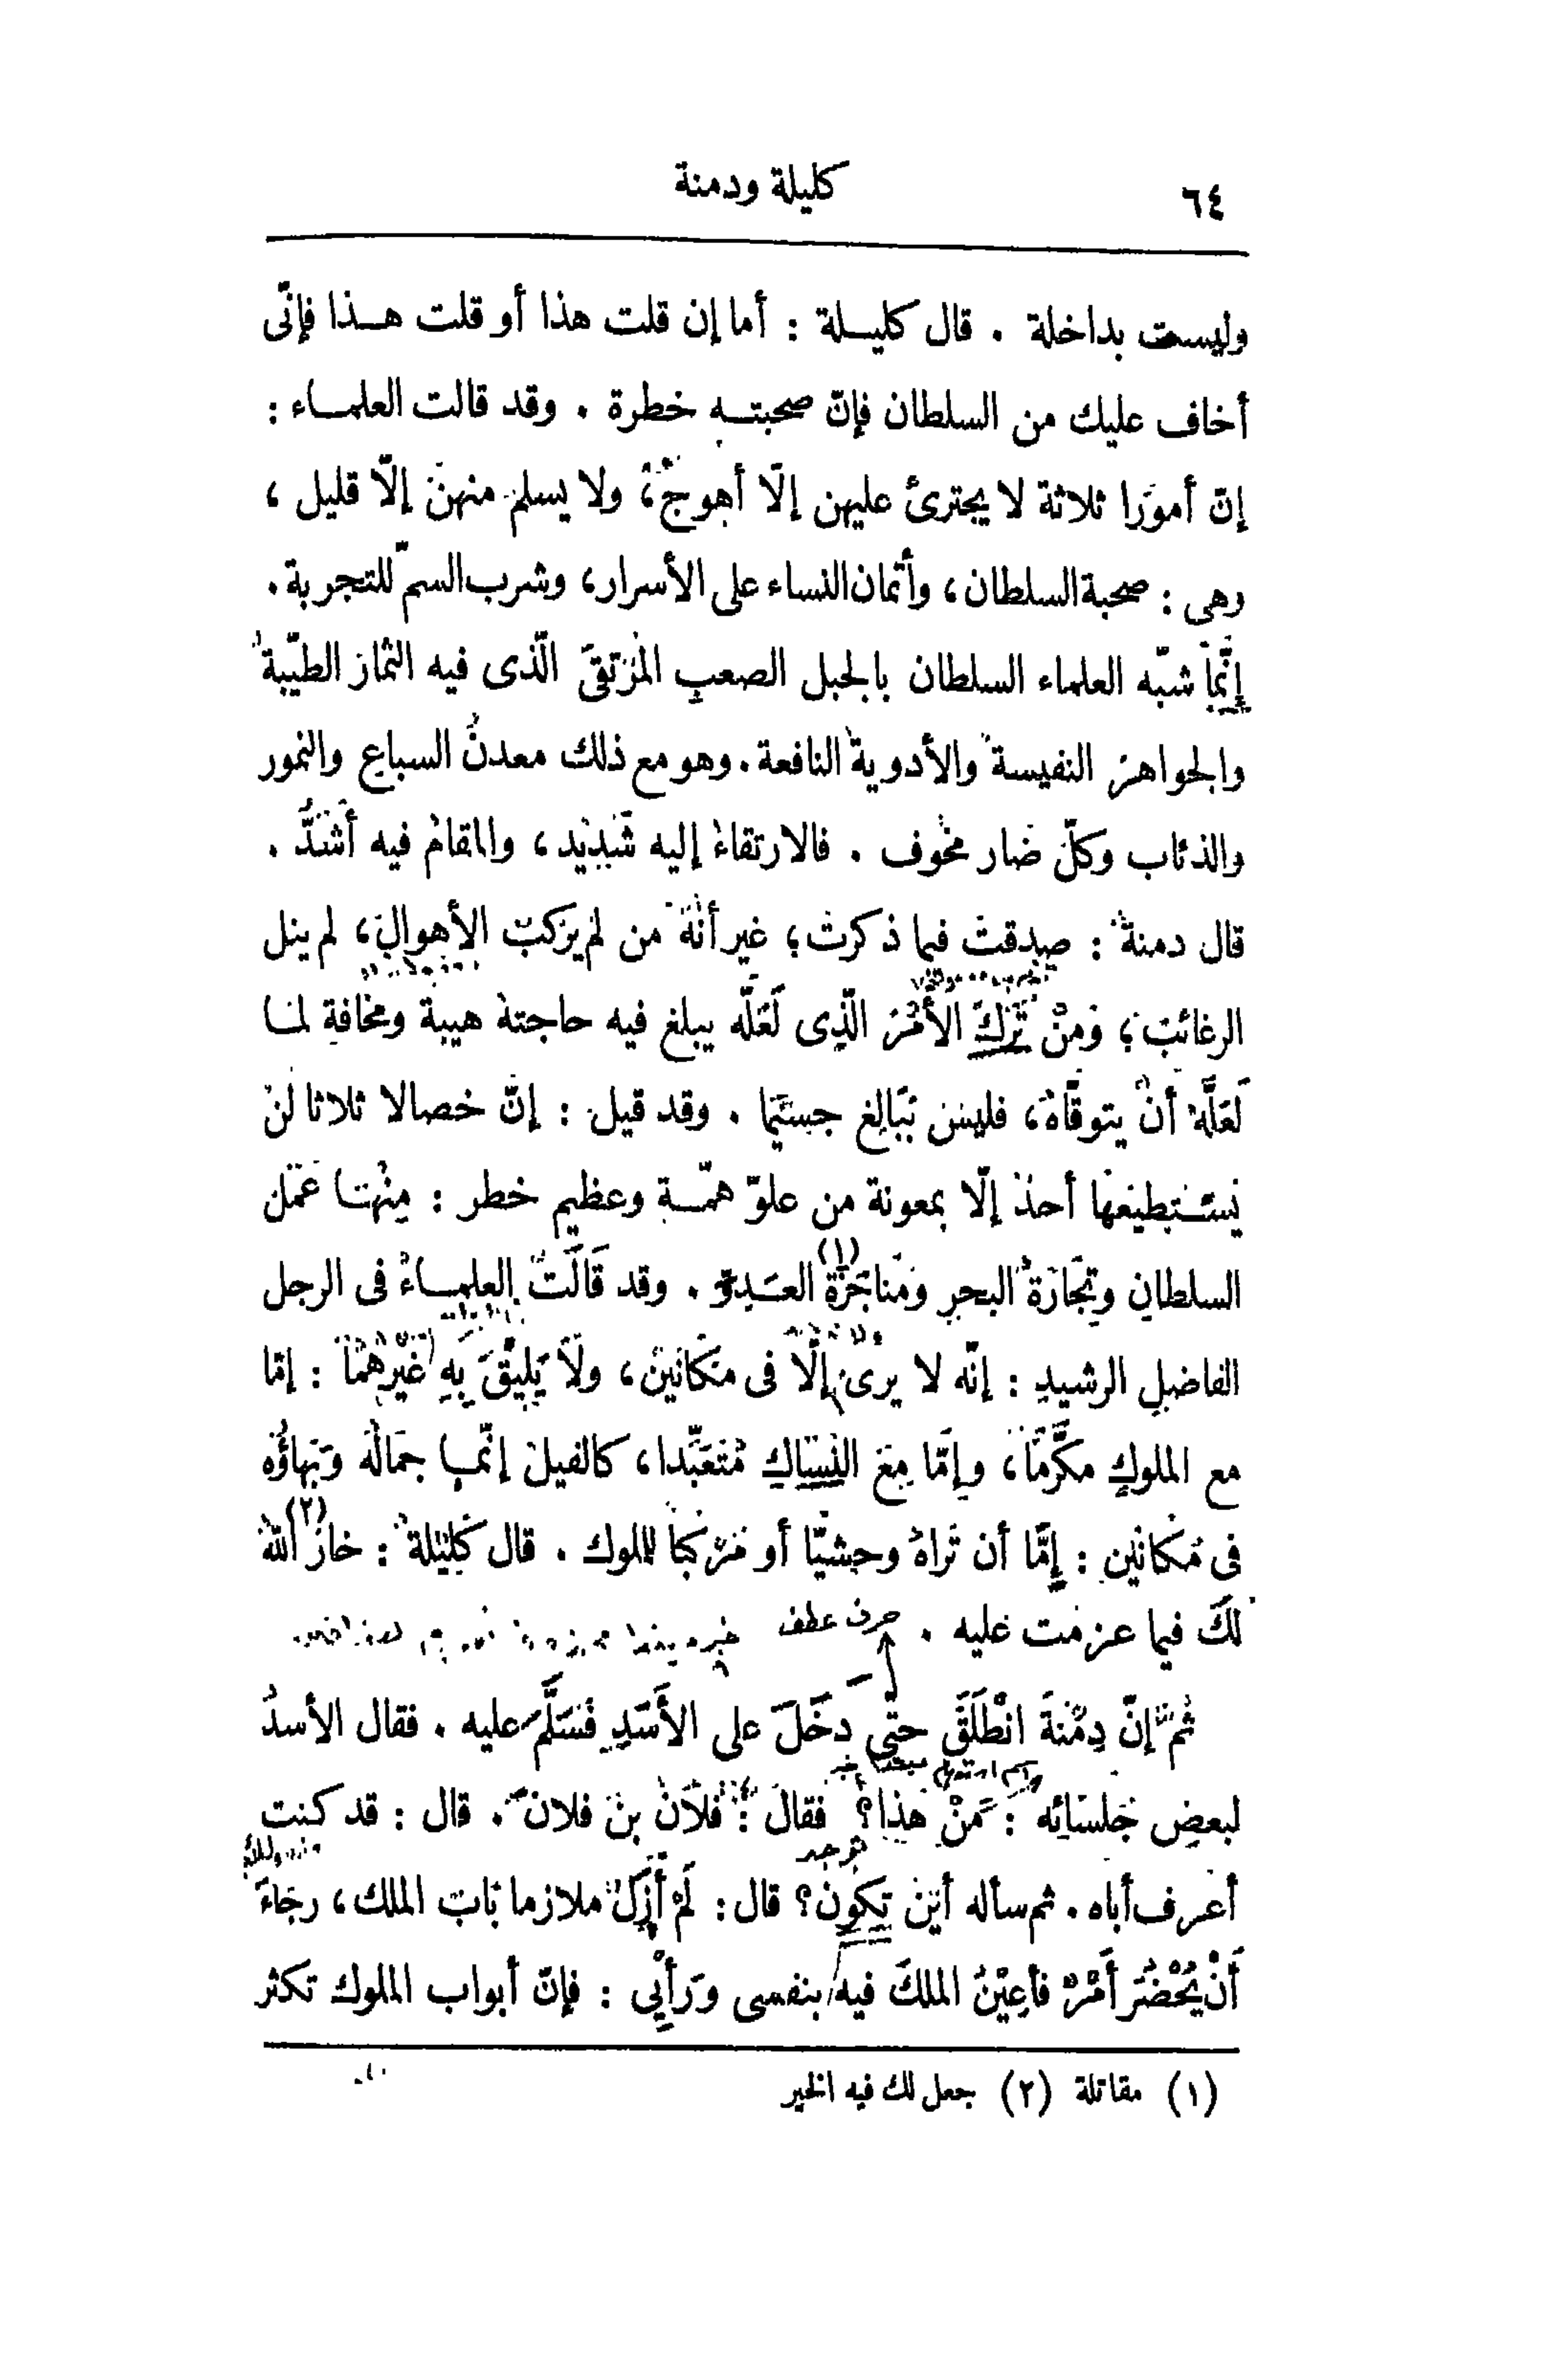 ٦٤ كليلة ودمنة
وليست بداخلة . قال كليلة : أما إن قلت هذا أو قلت هذا فإنّى
أخاف عليك من السلطان فإنّ صحبته خطرة . وقد قالت العلماء :
إنّ أمورا ثلاثة لا يجترئ عليهن إلّا أهوج، ولا يسلم منهن إلّا قليل ،
وهى : صحبة السلطان، وأتمان النساء على الأسرار، وشرب السمّ للتجربة .
إنّما شبّه العلماء السلطان بالجبل الصعب المرتقى الّذى فيه الثمار الطيّبة
والجواهر النفيسة والأدوية النافعة . وهو مع ذلك معدن السباع والنمور
والذئاب وكلّ ضار مخوف . فالارتقاء إليه شديد، والمقام فيه أشدّ .
قال دمنة : صدقت فيما ذكرت؛ غير أنه من لم يركب الأهوال، لم ينل
الرغائب؛ ومن ترك الأمر الّذى لعلّه يبلغ فيه حاجته هيبة ومخافة لما
لعلّه أن يتوقّاه، فليس ببالغ جسيما . وقد قيل : إنّ خصالا ثلاثا لن
يستطيعها أحد إلّا بمعونة من علوّ همّة وعظيم خطر : منها عمل
السلطان وتجارة البحر ومناجزة (١) العدوّ . وقد قالت العلماء فى الرجل
الفاضل الرشيد : إنّه لا يرى إلّا فى مكانين، ولا يليق به غيرهما : إمّا
مع الملوك مكرّما، وإمّا مع النساك متعبّدا، كالفيل إنّما جماله وبهاؤه
فى مكانين : إمّا أن تراه وحشيّا أو مركبا للملوك . قال كليلة : خار (٢) الله
لك فيما عزمت عليه . حرف عطف
ثم إنّ دمنة انطلق حتّى دخل على الأسد فسلّم عليه . فقال الأسد
لبعض جلسائه : من هذا؟ فقال : فلان بن فلان . قال : قد كنت
أعرف أباه . ثم سأله أين تكون؟ قال : لم أزل ملازما باب الملك، رجاء
أن يحضر أمر فأعين الملك فيه بنفسى ورأيى : فإنّ أبواب الملوك تكثر
(١) مقاتلة (٢) جعل لك فيه الخير